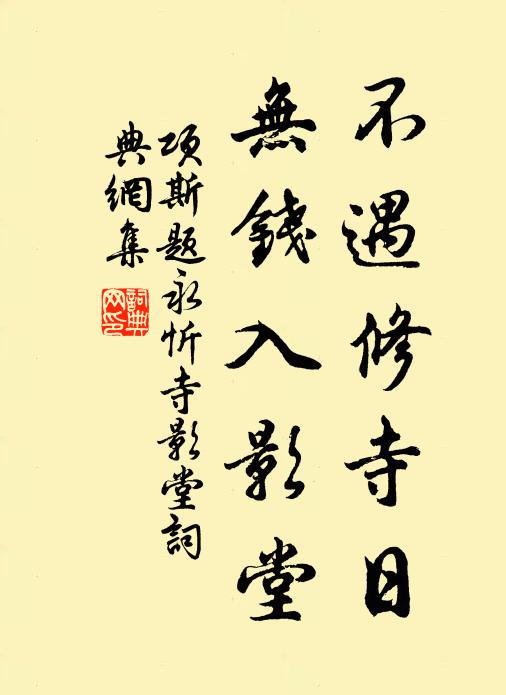 不遇修寺日
無錢入影堂
項斯題永忻寺影堂詞
典網集
詞典
网印